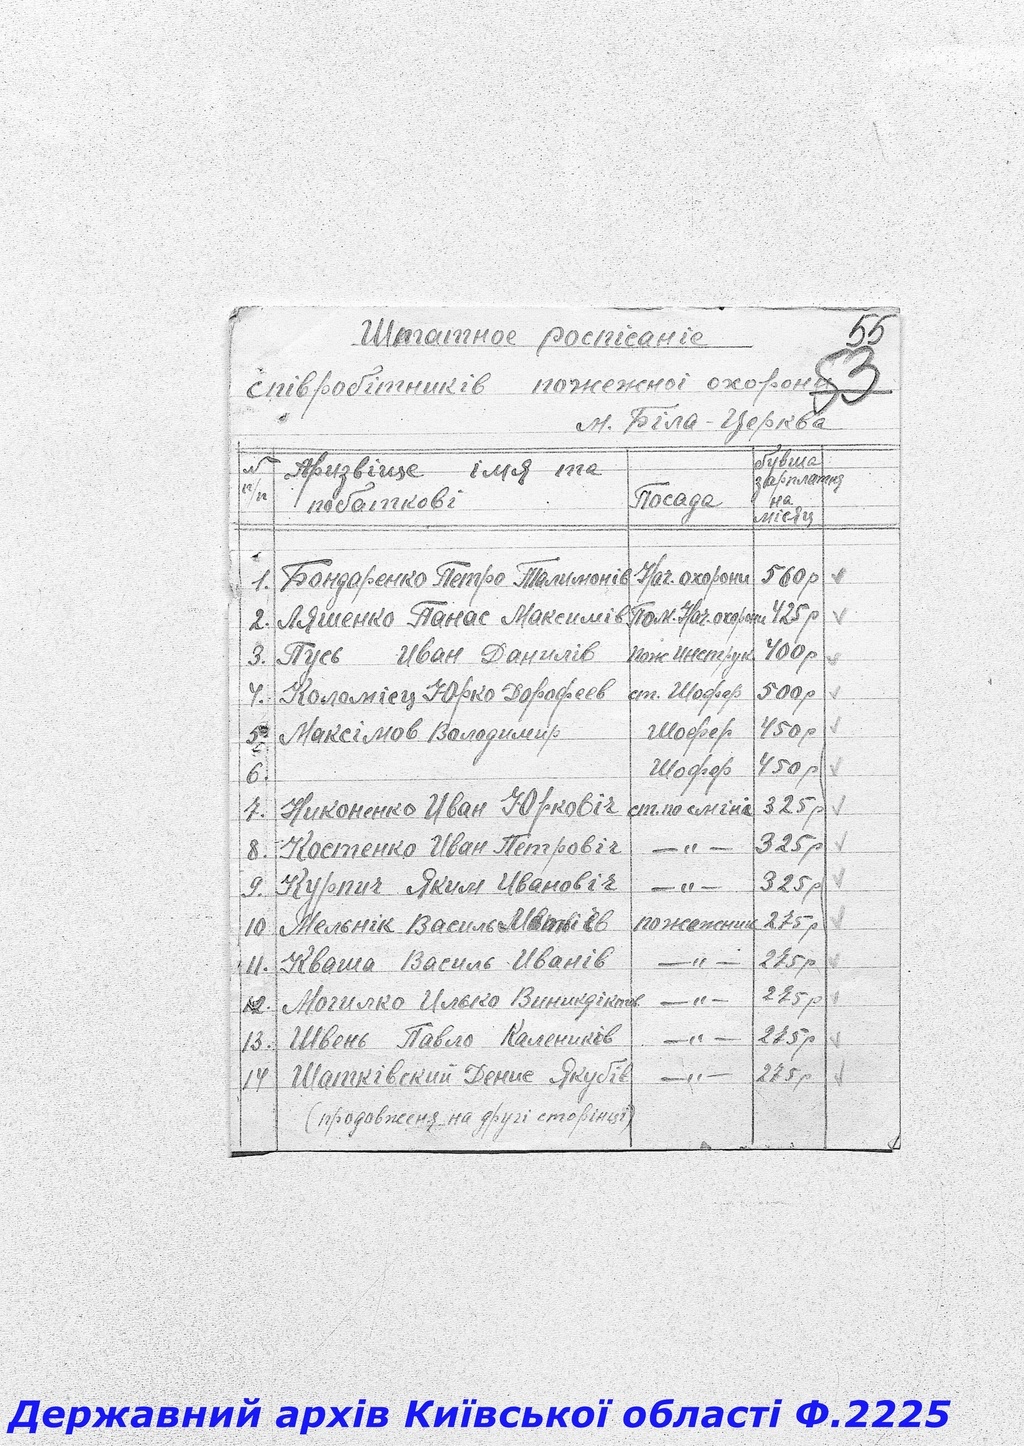 55
Штатное росписаніе
53
співробітників пожежної охорони
м. Біла-Церква
№ п/п Призвіще імя та побаткові Посада бувша зарплатня на місяц
1. Бондаренко Петро Талимонів Нач. охорони 560р ✓
2. Ляшенко Панас Максимів Пом. Нач. охорони 425р ✓
3. Пусь Иван Данилів пож инструк. 400р ✓
4. Коломієц Юрко Дорофеев ст. Шофер 500р ✓
5. Максімов Володимир Шофер 450р ✓
6. Шофер 450р ✓
7. Никоненко Иван Юркович ст. по сміні 325р ✓
8. Костенко Иван Петровіч —"— 325р ✓
9. Курпич Яким Ивановіч —"— 325р ✓
10 Мельнік Василь Матвіїв пожежник 275р ✓
11. Кваша Василь Иванів —"— 275р ✓
12. Могилко Илько —"— 275р ✓
13. Швень Павло Калеників —"— 275р ✓
14 Шатківский Денис Якубів —"— 275р ✓
(продовженя на другі сторінці)
Державний архів Київської області Ф.2225